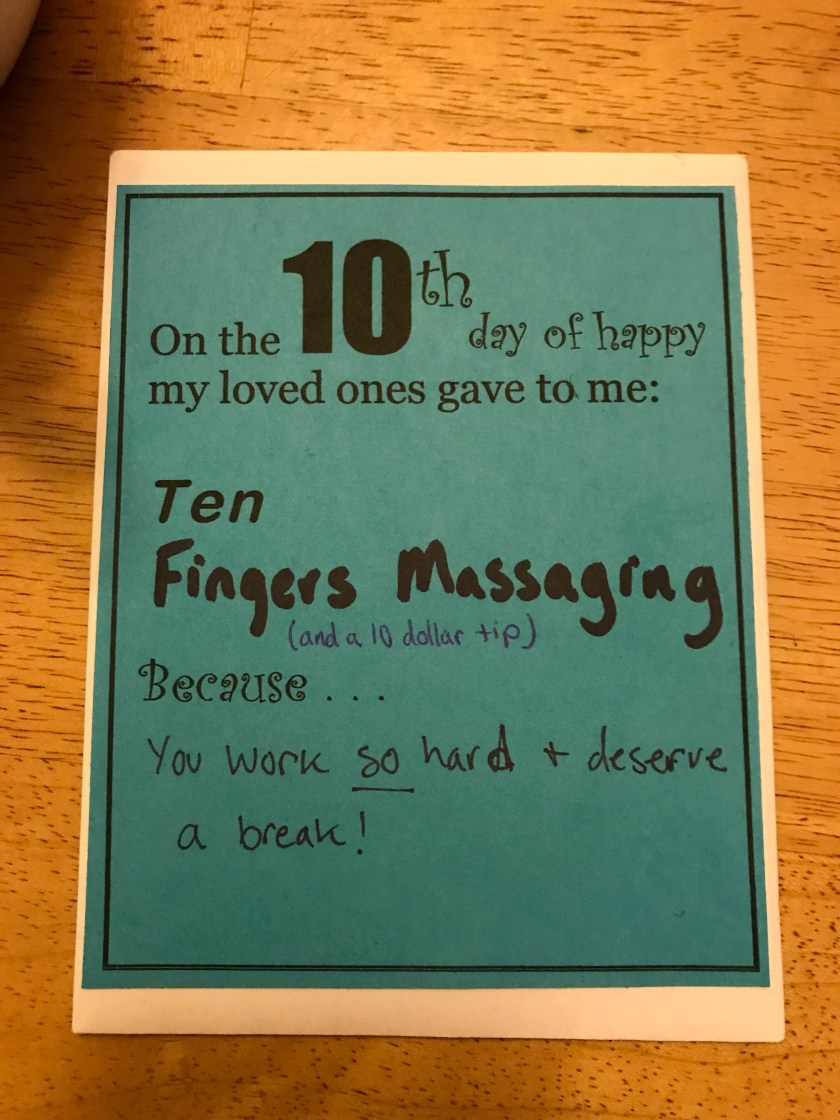 On the 10th day of happy
my loved ones gave to me:
Ten
Fingers Massaging
(and a 10 dollar tip)
Because . . .
You work so hard + deserve
a break!